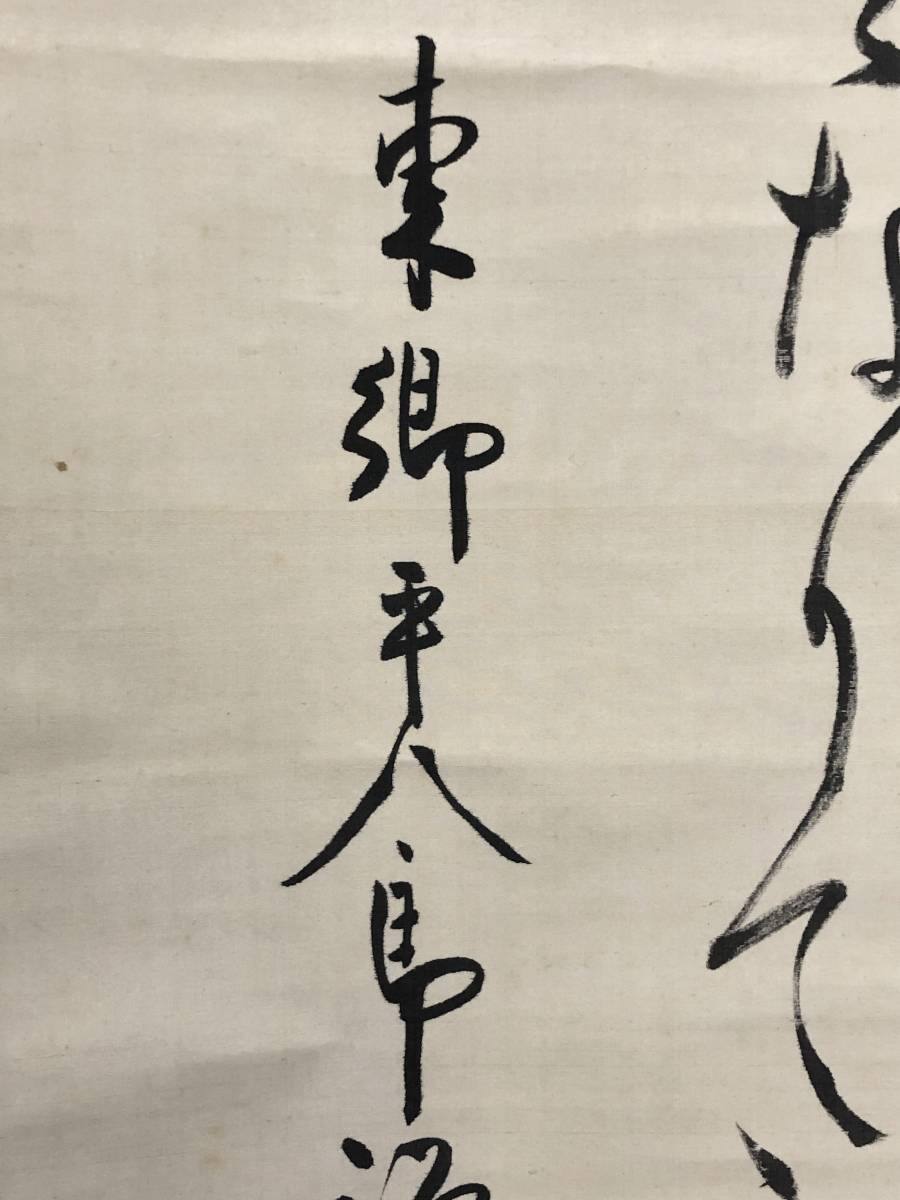 なりて
東郷平八郎